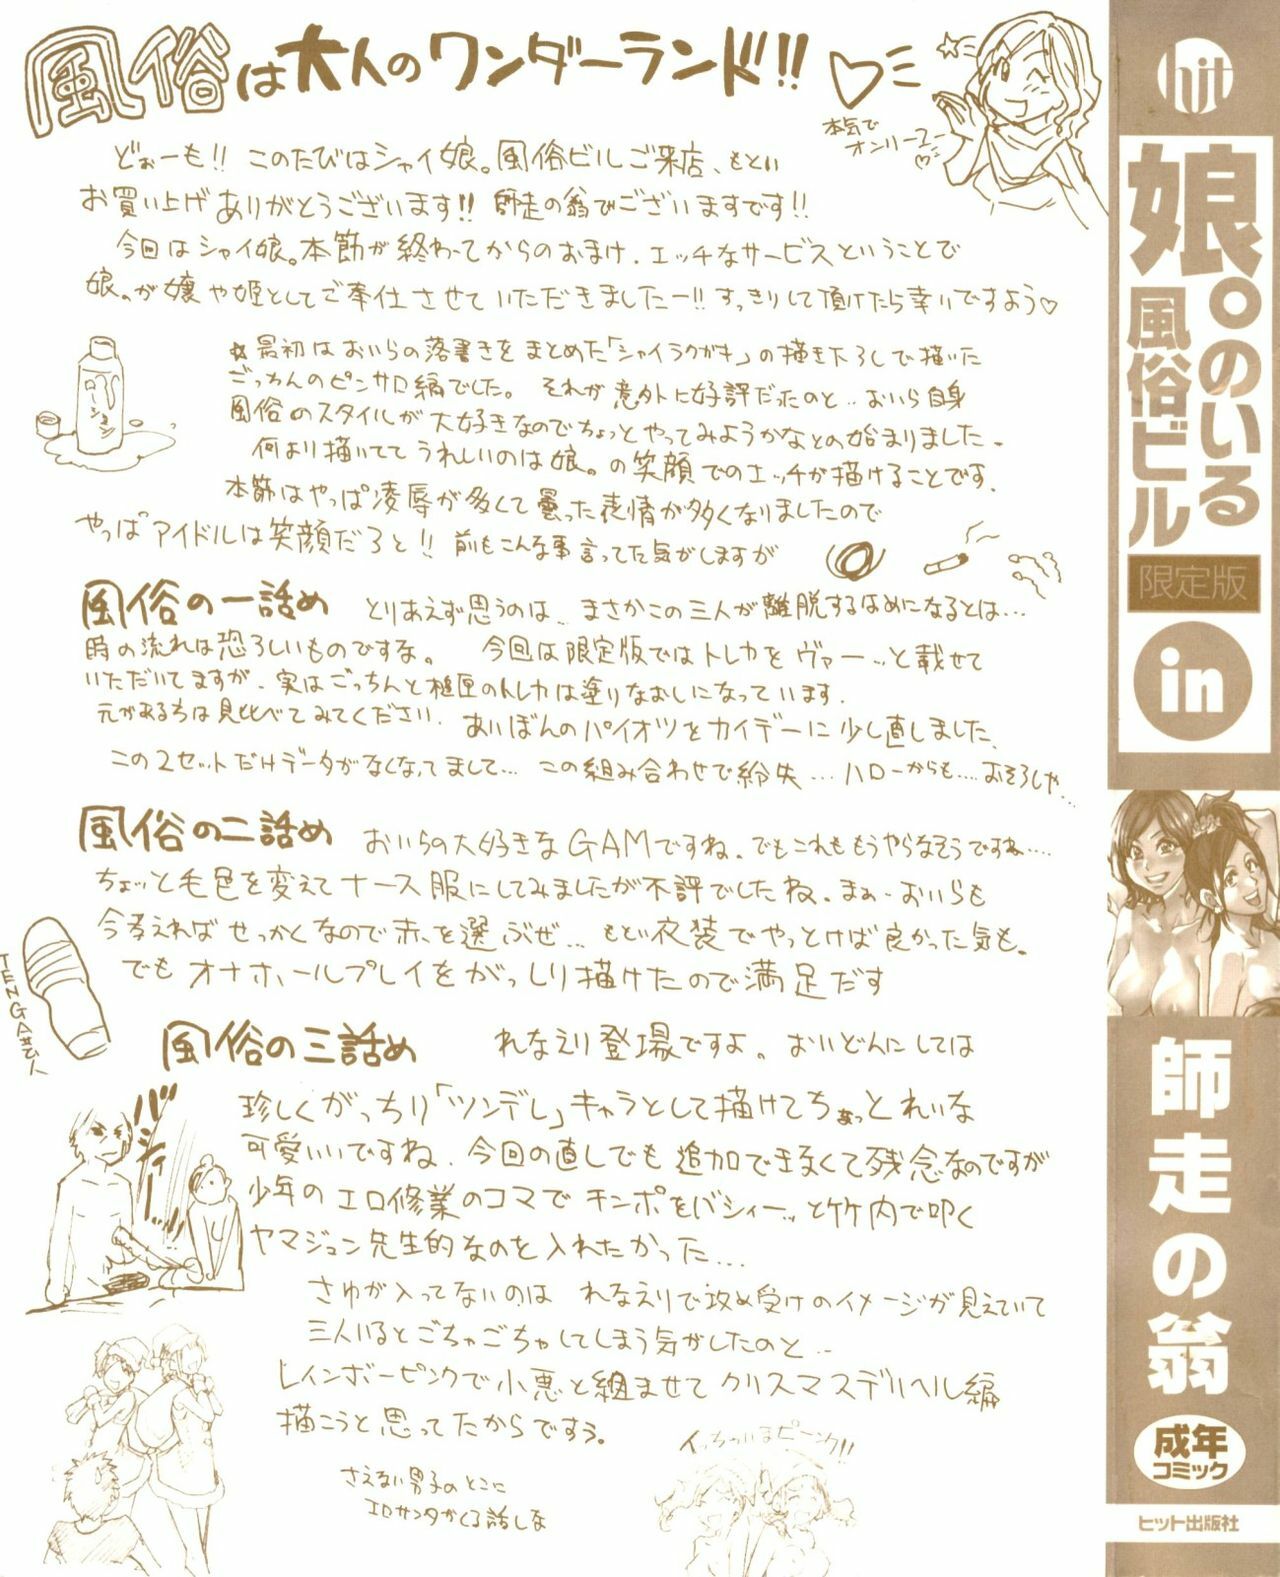 風俗は大人のワンダーランド!!
本気で
オンリーユー
どぉーも!! このたびはシャイ娘。風俗ビルご来店、もとい
お買い上げありがとうございます!! 師走の翁でございますです!!
今回はシャイ娘。本節が終わってからのおまけ、エッチなサービスということで
娘。が嬢や姫としてご奉仕させていただきましたー!! すっきりして頂けたら幸いですよう♡
ローション
★最初はおいらの落書きをまとめた「シャイラクガキ」の描き下ろしで描いた
ごっちんのピンサロ編でした。それが意外に好評だったのと‥おいら自身
風俗のスタイルが大好きなのでちょっとやってみようかなとの始まりました。
何より描いててうれしいのは娘。の笑顔でのエッチが描けることです。
本節はやっぱ凌辱が多くて曇った表情が多くなりましたので
やっぱアイドルは笑顔だろと!! 前もこんな事言ってた気がしますが
風俗の一話め とりあえず思うのは、まさかこの三人が離脱するはめになるとは…
時の流れは恐ろしいものですな。 今回は限定版ではトレカをヴァーッと載せて
いただいてますが、実はごっちんと
のトレカは塗りなおしになっています。
元がある方は見比べてみてください。あいぼんのパイオツをカイデーに少し直しました、
この2セットだけデータがなくなってまして… この組み合わせで紛失…ハローからも‥‥おそろしや…
風俗の二話め おいらの大好きなGAMですね。でもこれももうやらなそうですね‥‥
ちょッと毛色を変えてナース服にしてみましたが不評でしたね。まぁ‥おいらも
今考えればせっかくなので赤を選ぶぜ… もとい衣装でやっとけば良かった気も。
でもオナホールプレイをがっしり描けたので満足だす
TENGA芸人
風俗の三話め れなえり登場ですよ。おいどんにしては
珍しくがっちり「ツンデレ」キャラとして描けてちょっとれいな
可愛いいですね、今回の直しでも追加できなくて残念なのですが
少年のエロ修業のコマでチンポをバシィーッと竹内で叩く
ヤマジュン先生的なのを入れたかった…
バシィー
さゆが入ってないのは れなえりで攻め受けのイメージが見えていて
三人いるとごちゃごちゃしてしまう気がしたのと‥
レインボーピンクで小悪と組ませてクリスマスデリヘル編
描こうと思ってたからですう。
いっちゃいまピーンク!!
さえない男子のとこに
エロサンタがくる話しな
hit
娘。のいる
風俗ビル
限定版
in
師走の翁
成年
コミック
ヒット出版社